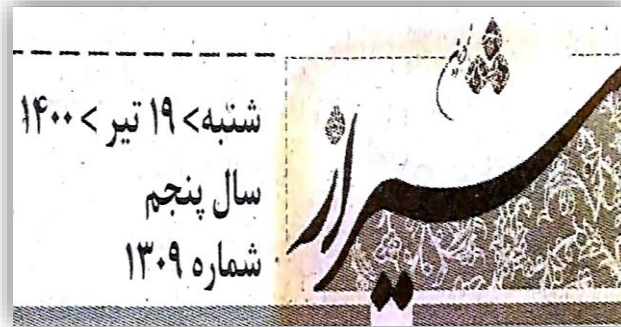 شیراز
شنبه> ۱۹ تیر > ۱۴۰۰
سال پنجم
شماره ۱۳۰۹